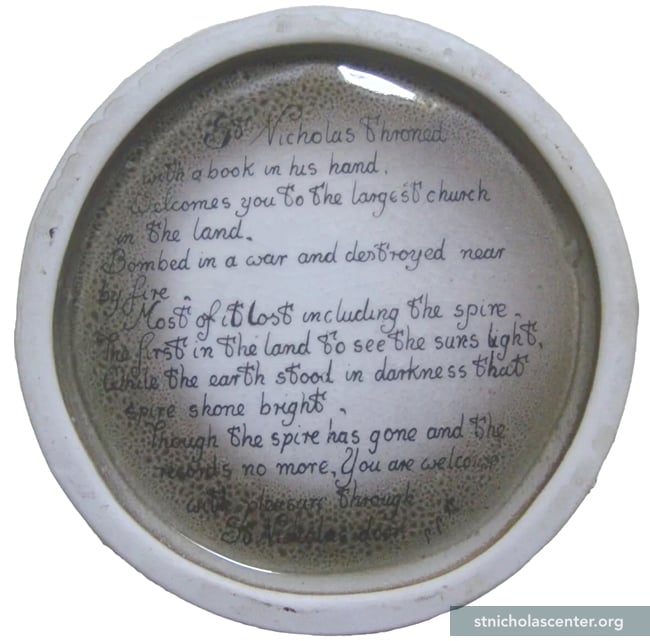 St Nicholas throned
with a book in his hand.
welcomes you to the largest church
in the land.
Bombed in a war and destroyed near
by fire.
Most of it lost including the spire.
The first in the land to see the suns light,
While the earth stood in darkness that
spire shone bright.
Though the spire has gone and the
records no more, You are welcome
with pleasure through
St Nicholas door
stnicholascenter.org